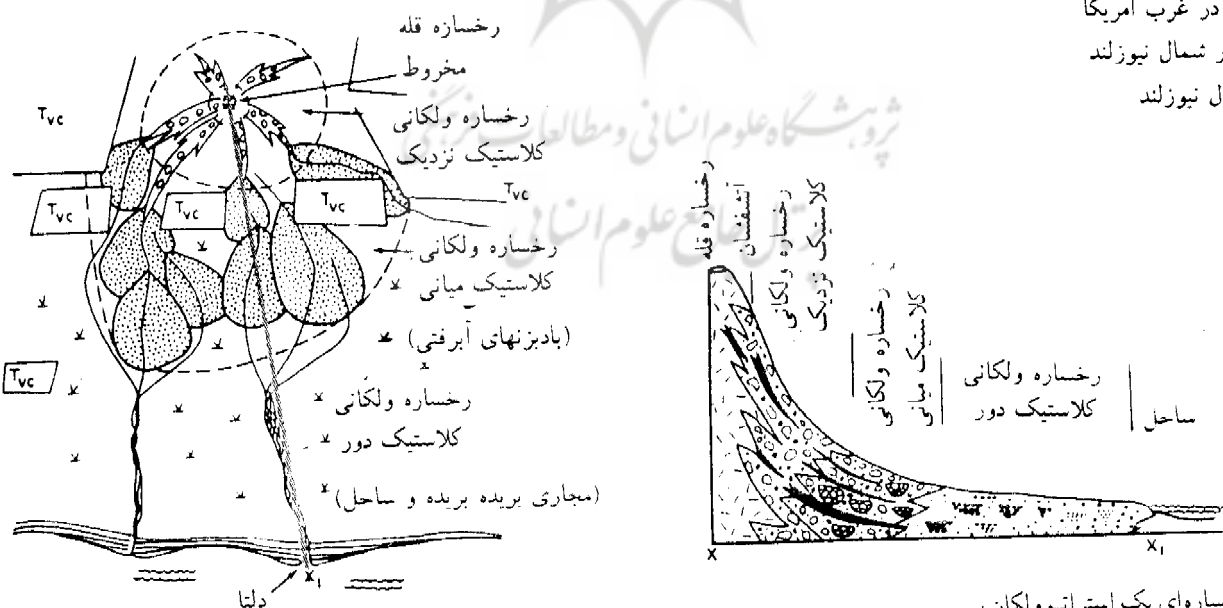 در غرب امریکا
ر شمال نیوزلند
ل نیوزلند
پژوهشگاه علوم انسانی و مطالعات فرهنگی
علوم انسانی
رخسازه قله
مخروط
رخساره ولکانی
کلاستیک نزدیک
Tvc
Tvc
Tvc
Tvc
Tvc
Tvc
رخساره ولکانی
کلاستیک میانی
(بادبزنهای آبرفتی)
رخساره ولکانی
کلاستیک دور
(مجاری بریده بریده و ساحل)
X₁
دلتا
رخساره قله
اتشفشان
رخساره ولکانی
کلاستیک نزدیک
رخساره ولکانی
کلاستیک میانی
رخساره ولکانی
کلاستیک دور
ساحل
X
X₁